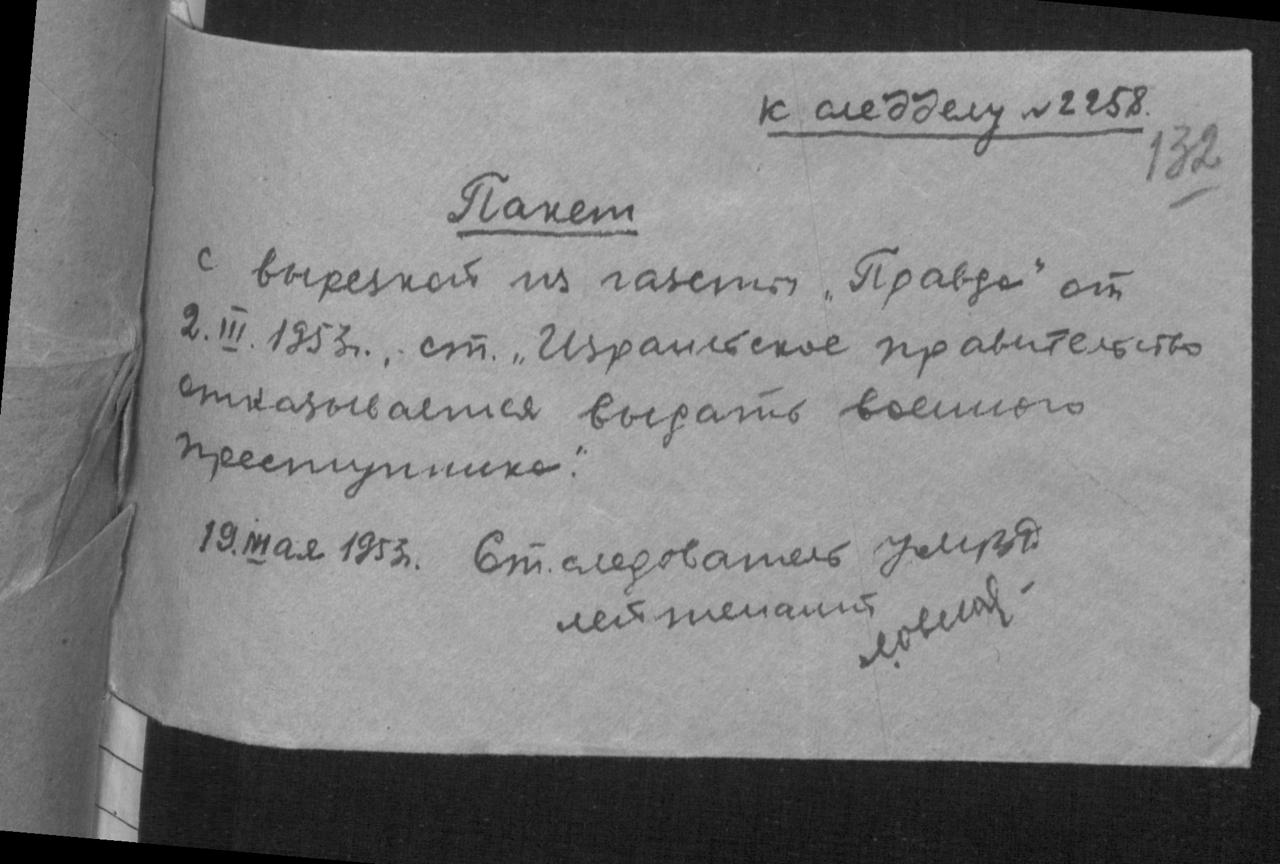 к следделу №2258.
132
Пакет
с вырезкой из газеты „Правда" от
2.III.1953г., ст. „Израильское правительство
отказывается выдать военного
преступника".
19. мая 1953г. Ст. следователь
лейтенант